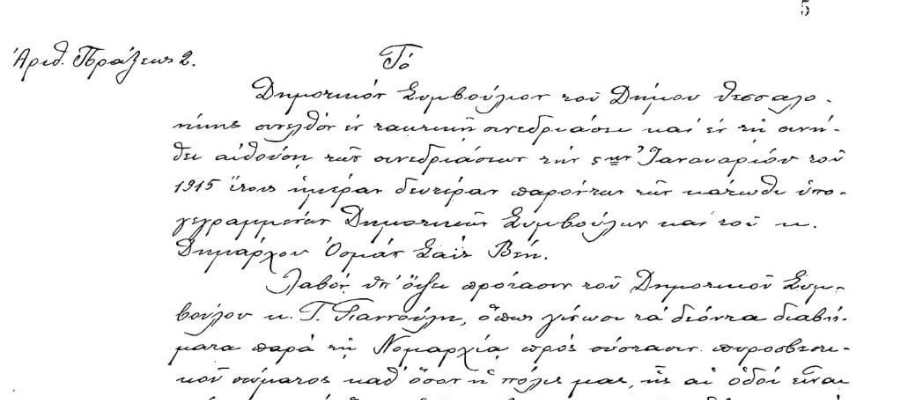 5
Ἀριθ. Πράξεως 2.
Τό
Δημοτικόν Συμβούλιον τοῦ Δήμου Θεσσαλο-
νίκης συνελθόν ἐν τακτικῇ συνεδριάσει καί ἐν τῇ συνή-
θει αἰθούσῃ τῶν συνεδριάσεων τήν 5ην Ἰανουαρίου τοῦ
1915 ἔτους ἡμέραν δευτέραν παρόντων τῶν κάτωθι ὑπο-
γεγραμμένων Δημοτικῶν Συμβούλων καί τοῦ κ.
Δημάρχου Ὀσμάν Σαΐτ Βέη.
Λαβόν ὑπ' ὄψει πρότασιν τοῦ Δημοτικοῦ Συμ-
βούλου κ. Γ. Γιαννούλη, ὅπως γίνωσι τά δέοντα διαβή-
ματα παρά τῇ Νομαρχίᾳ πρός σύστασιν πυροσβεστι-
κοῦ σώματος καθ' ὅσον ἡ πόλις μας, ἧς αἱ ὁδοί εἶναι